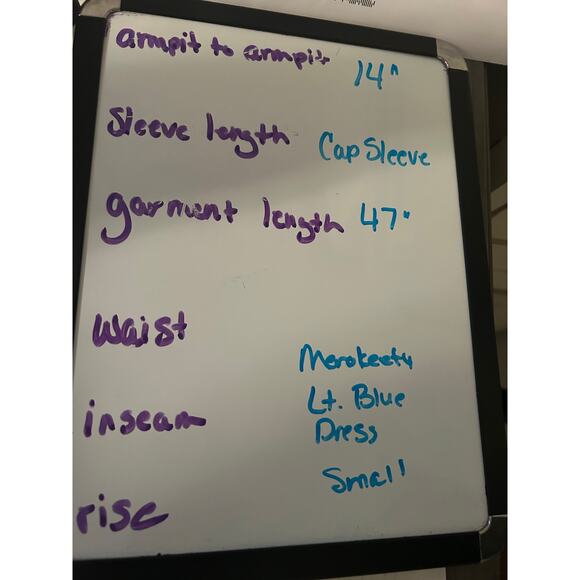 armpit to armpit 14"
Sleeve length Cap Sleeve
garment length 47"
waist
Merokeety
inseam
Lt. Blue
Dress
rise
Small